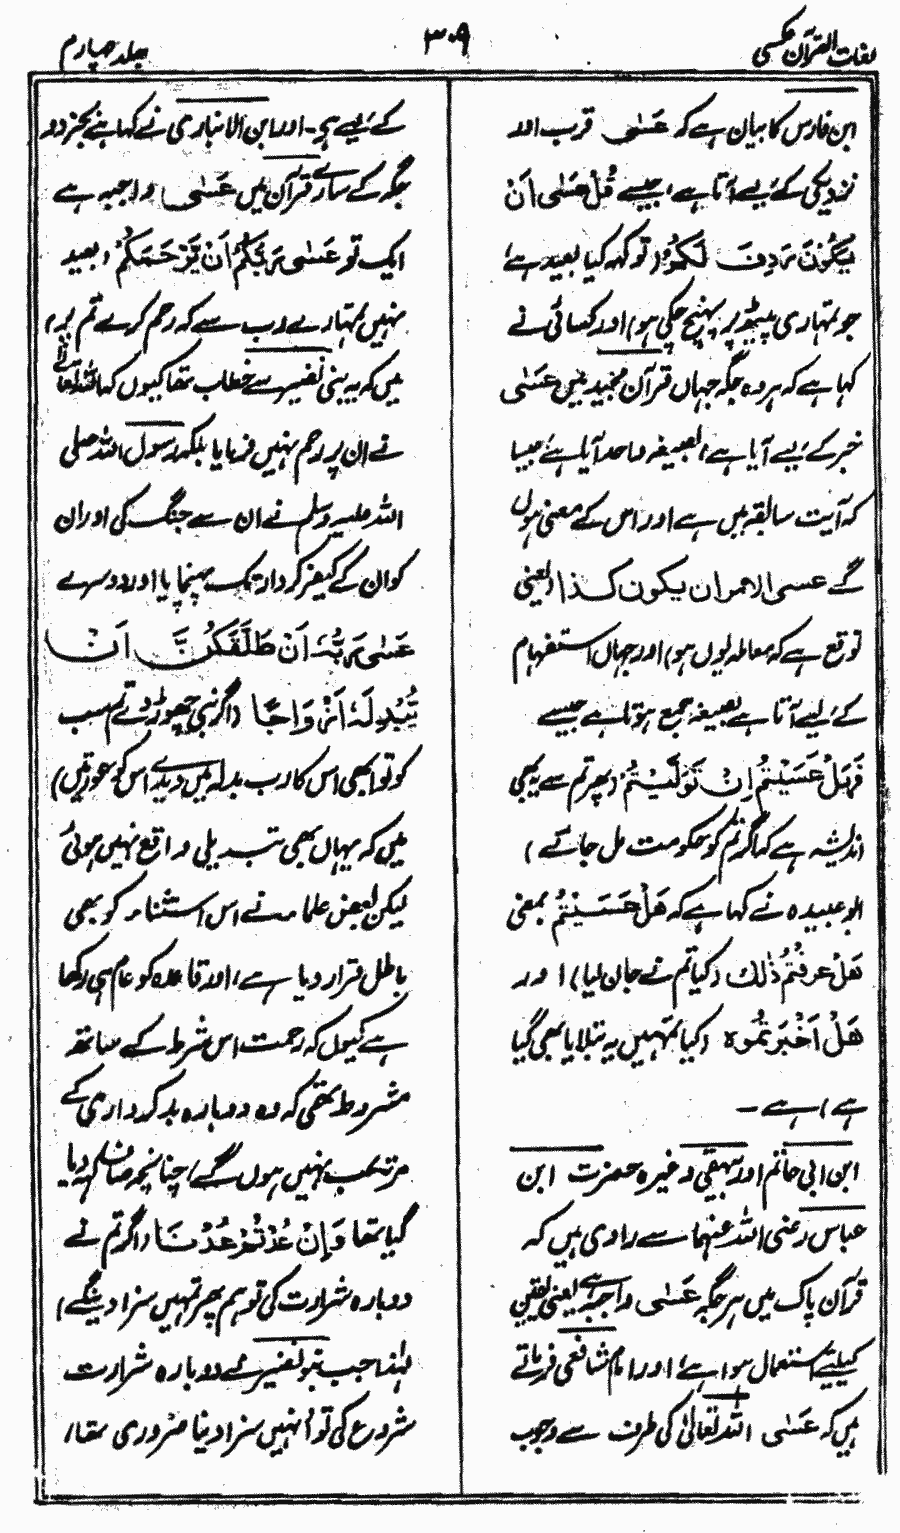 لغات القرآن عکسی
۳۰۹
جلد چہارم
ابن فارس کا بیان ہے کہ عَسٰی قرب اور
نزدیکی کے لیے آتا ہے، جیسے قُلْ عَسٰی اَنْ
یَکُوْنَ رَدِفَ لَکُمْ (تو کہہ کیا بعید ہے
جو تمہاری پیٹھ پر پہنچ چکی ہو) اور کسائی نے
کہا ہے کہ ہر وہ جگہ جہاں قرآن مجید میں عَسٰی
خبر کے لیے آیا ہے، بصیغہ واحد آیا ہے جیسا
کہ آیت سابقہ میں ہے اور اس کے معنی ہوں
گے عسی الامر ان یکون کذا (یعنی
توقع ہے کہ معاملہ یوں ہو) اور جہاں استفہام
کے لیے آتا ہے بصیغہ جمع ہوتا ہے جیسے
فَهَلْ عَسَيْتُمْ اِنْ تَوَلَّيْتُمْ (پھر تم سے یہ بھی
اندیشہ ہے کہ اگر تم کو حکومت مل جائے)
ابو عبیدہ نے کہا ہے کہ هَلْ عَسَيْتُمْ بمعنی
هَلْ عَرَفْتُمْ ذٰلِكَ (کیا تم نے جان لیا) اور
هَلْ اَخْبَرْتُمُوهُ (کیا تمہیں یہ بتلایا بھی گیا
ہے) ہے ۔
ابن ابی حاتم اور بیہقی وغیرہ حضرت ابن
عباس رضی اللہ عنہما سے راوی ہیں کہ
قرآن پاک میں ہر جگہ عَسٰی واجبہ ہے یعنی یقین
کیلئے استعمال ہوا ہے، اور امام شافعی فرماتے
ہیں کہ عَسٰی اللہ تعالیٰ کی طرف سے وجوب
کے لیے ہے۔ اور ابن الانباری نے کہا ہے بجز دو
جگہ کے سارے قرآن میں عَسٰی واجبہ ہے
ایک تو عَسٰی رَبُّکُمْ اَنْ یَّرْحَمَکُمْ (بعید
نہیں تمہارے رب سے کہ رحم کرے تم پر)
میں کہ یہ بنی نضیر سے خطاب تھا کیوں کہ اللہ تعالیٰ
نے ان پر رحم نہیں فرمایا بلکہ رسول اللہ صلی
اللہ علیہ وسلم نے ان سے جنگ کی اور ان
کو ان کے کیفر کردار تک پہنچایا اور دوسرے
عَسٰی رَبُّهٗ اِنْ طَلَّقَكُنَّ اَنْ
یُّبْدِلَهٗ اَزْوَاجًا (اگر نبی چھوڑ دے تم سب
کو تو ابھی اس کا رب بدلہ میں دیدے اس کو عورتیں)
میں کہ یہاں بھی تبدیلی واقع نہیں ہوئی
لیکن بعض علماء نے اس استثناء کو بھی
باطل قرار دیا ہے، اور قاعدہ کو عام ہی رکھا
ہے کیوں کہ رحمت اس شرط کے ساتھ
مشروط تھی کہ وہ دوبارہ بدکرداری کے
مرتکب نہیں ہوں گے، چنانچہ صاف کہہ دیا
گیا تھا وَاِنْ عُدْتُّمْ عُدْنَا (اگر تم نے
دوبارہ شرارت کی تو ہم پھر تمہیں سزا دینگے)
لہٰذا جب بنو نضیر نے دوبارہ شرارت
شروع کی تو انہیں سزا دینا ضروری تھا،